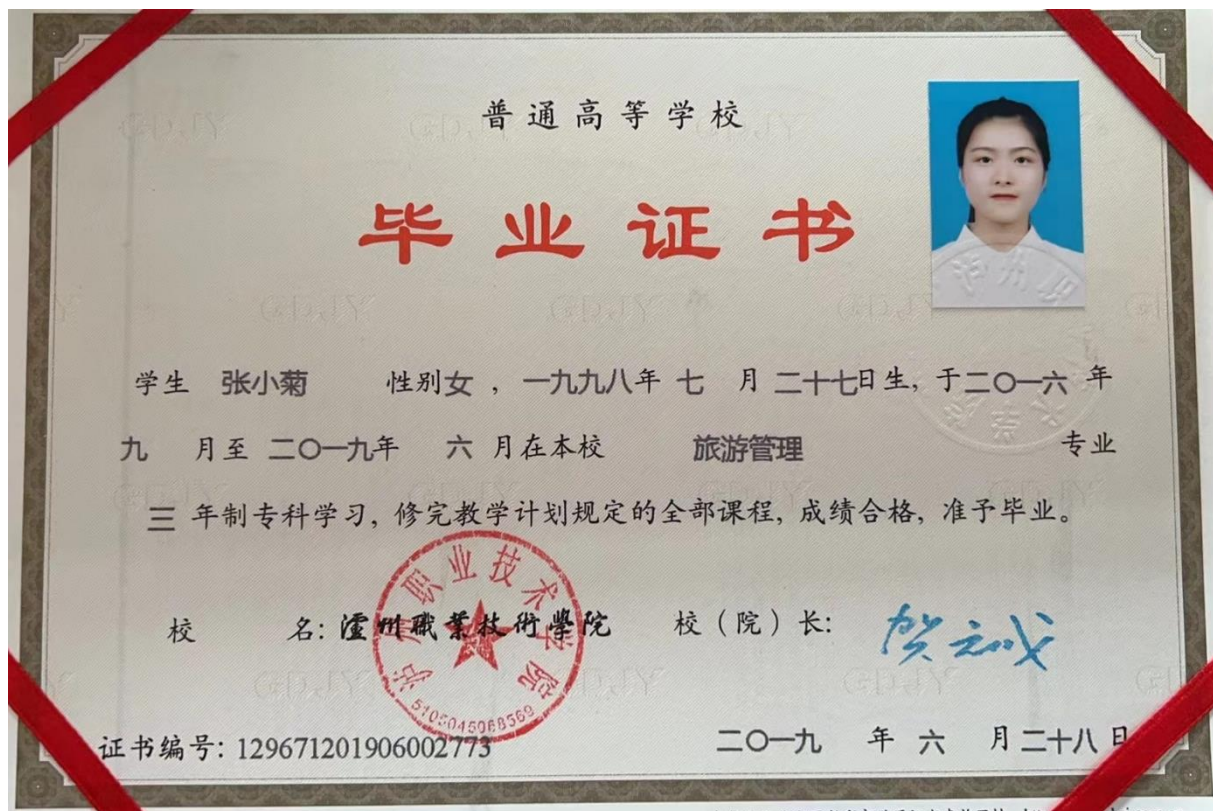 普通高等学校
毕业证书
学生 张小菊 性别女，一九九八年 七 月 二十七日生，于二〇一六 年
九 月至 二〇一九年 六 月在本校 旅游管理 专业
三 年制专科学习，修完教学计划规定的全部课程，成绩合格，准予毕业。
校 名：瀘州職業技術學院 校（院）长：贺元成
泸州职业技术学院
5105045068569
证书编号：129671201906002773
二〇一九 年 六 月二十八日
GDJY
泸州职